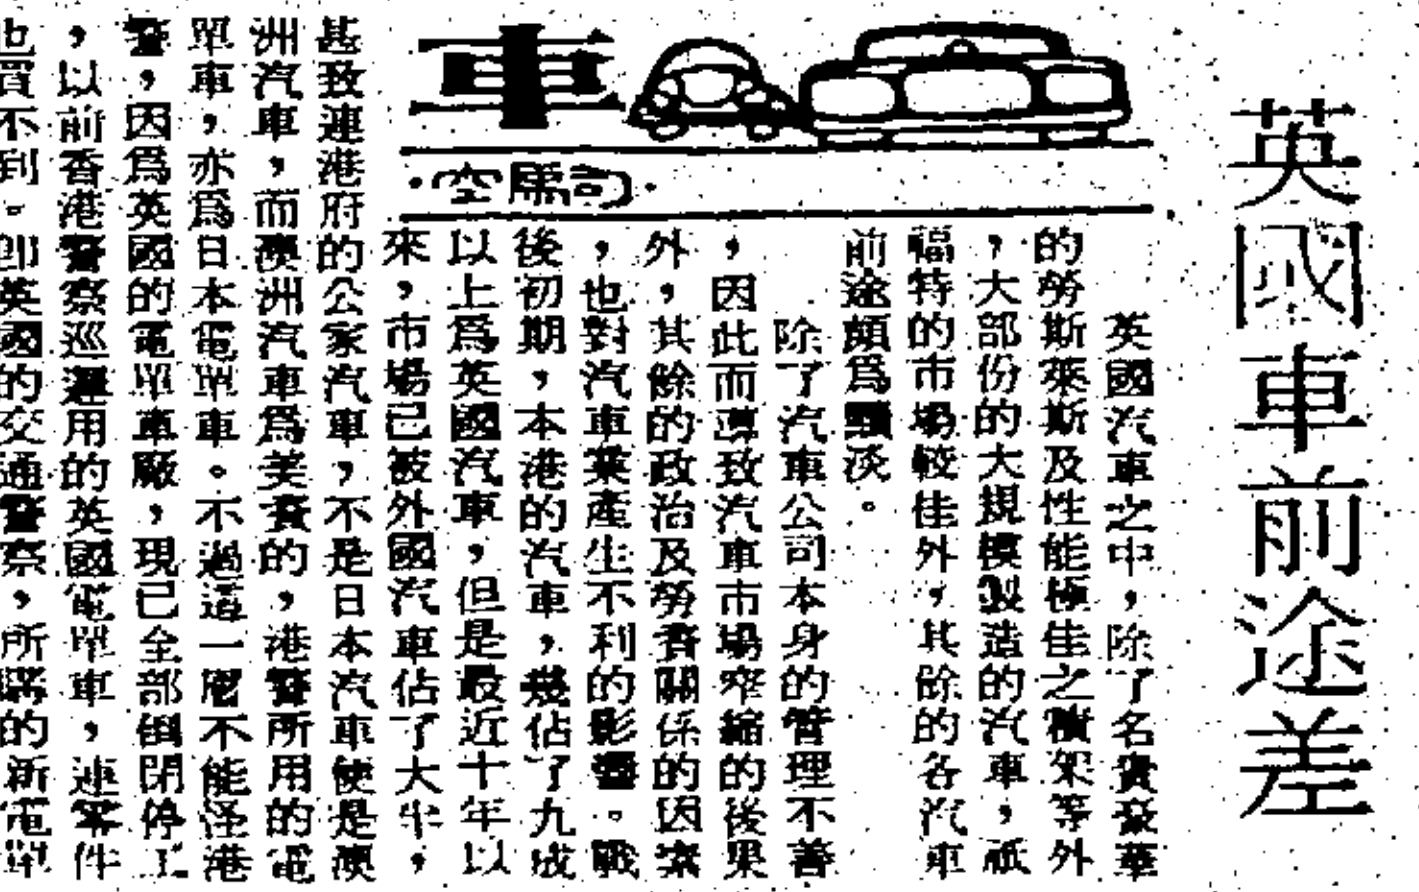 英國車前途差
車
·司馬空·
英國汽車之中，除了名貴豪華
的勞斯萊斯及性能極佳之積架等外
，大部份的大規模製造的汽車，祇
福特的市場較佳外，其餘的各汽車
前途頗為黯淡。
除了汽車公司本身的管理不善
，因此而導致汽車市場窄縮的後果
外，其餘的政治及勞資關係的因素
，也對汽車業產生不利的影響。戰
後初期，本港的汽車，幾佔了九成
以上爲英國汽車，但是最近十年以
來，市場已被外國汽車佔了大半，
甚致連港府的公家汽車，不是日本汽車便是澳
洲汽車，而澳洲汽車爲美資的，港警所用的電
單車，亦爲日本電單車。不過這一層不能怪港
警，因爲英國的電單車廠，現已全部倒閉停工
，以前香港警察巡邏用的英國電單車，連零件
也買不到。卽英國的交通警察，所購的新電單